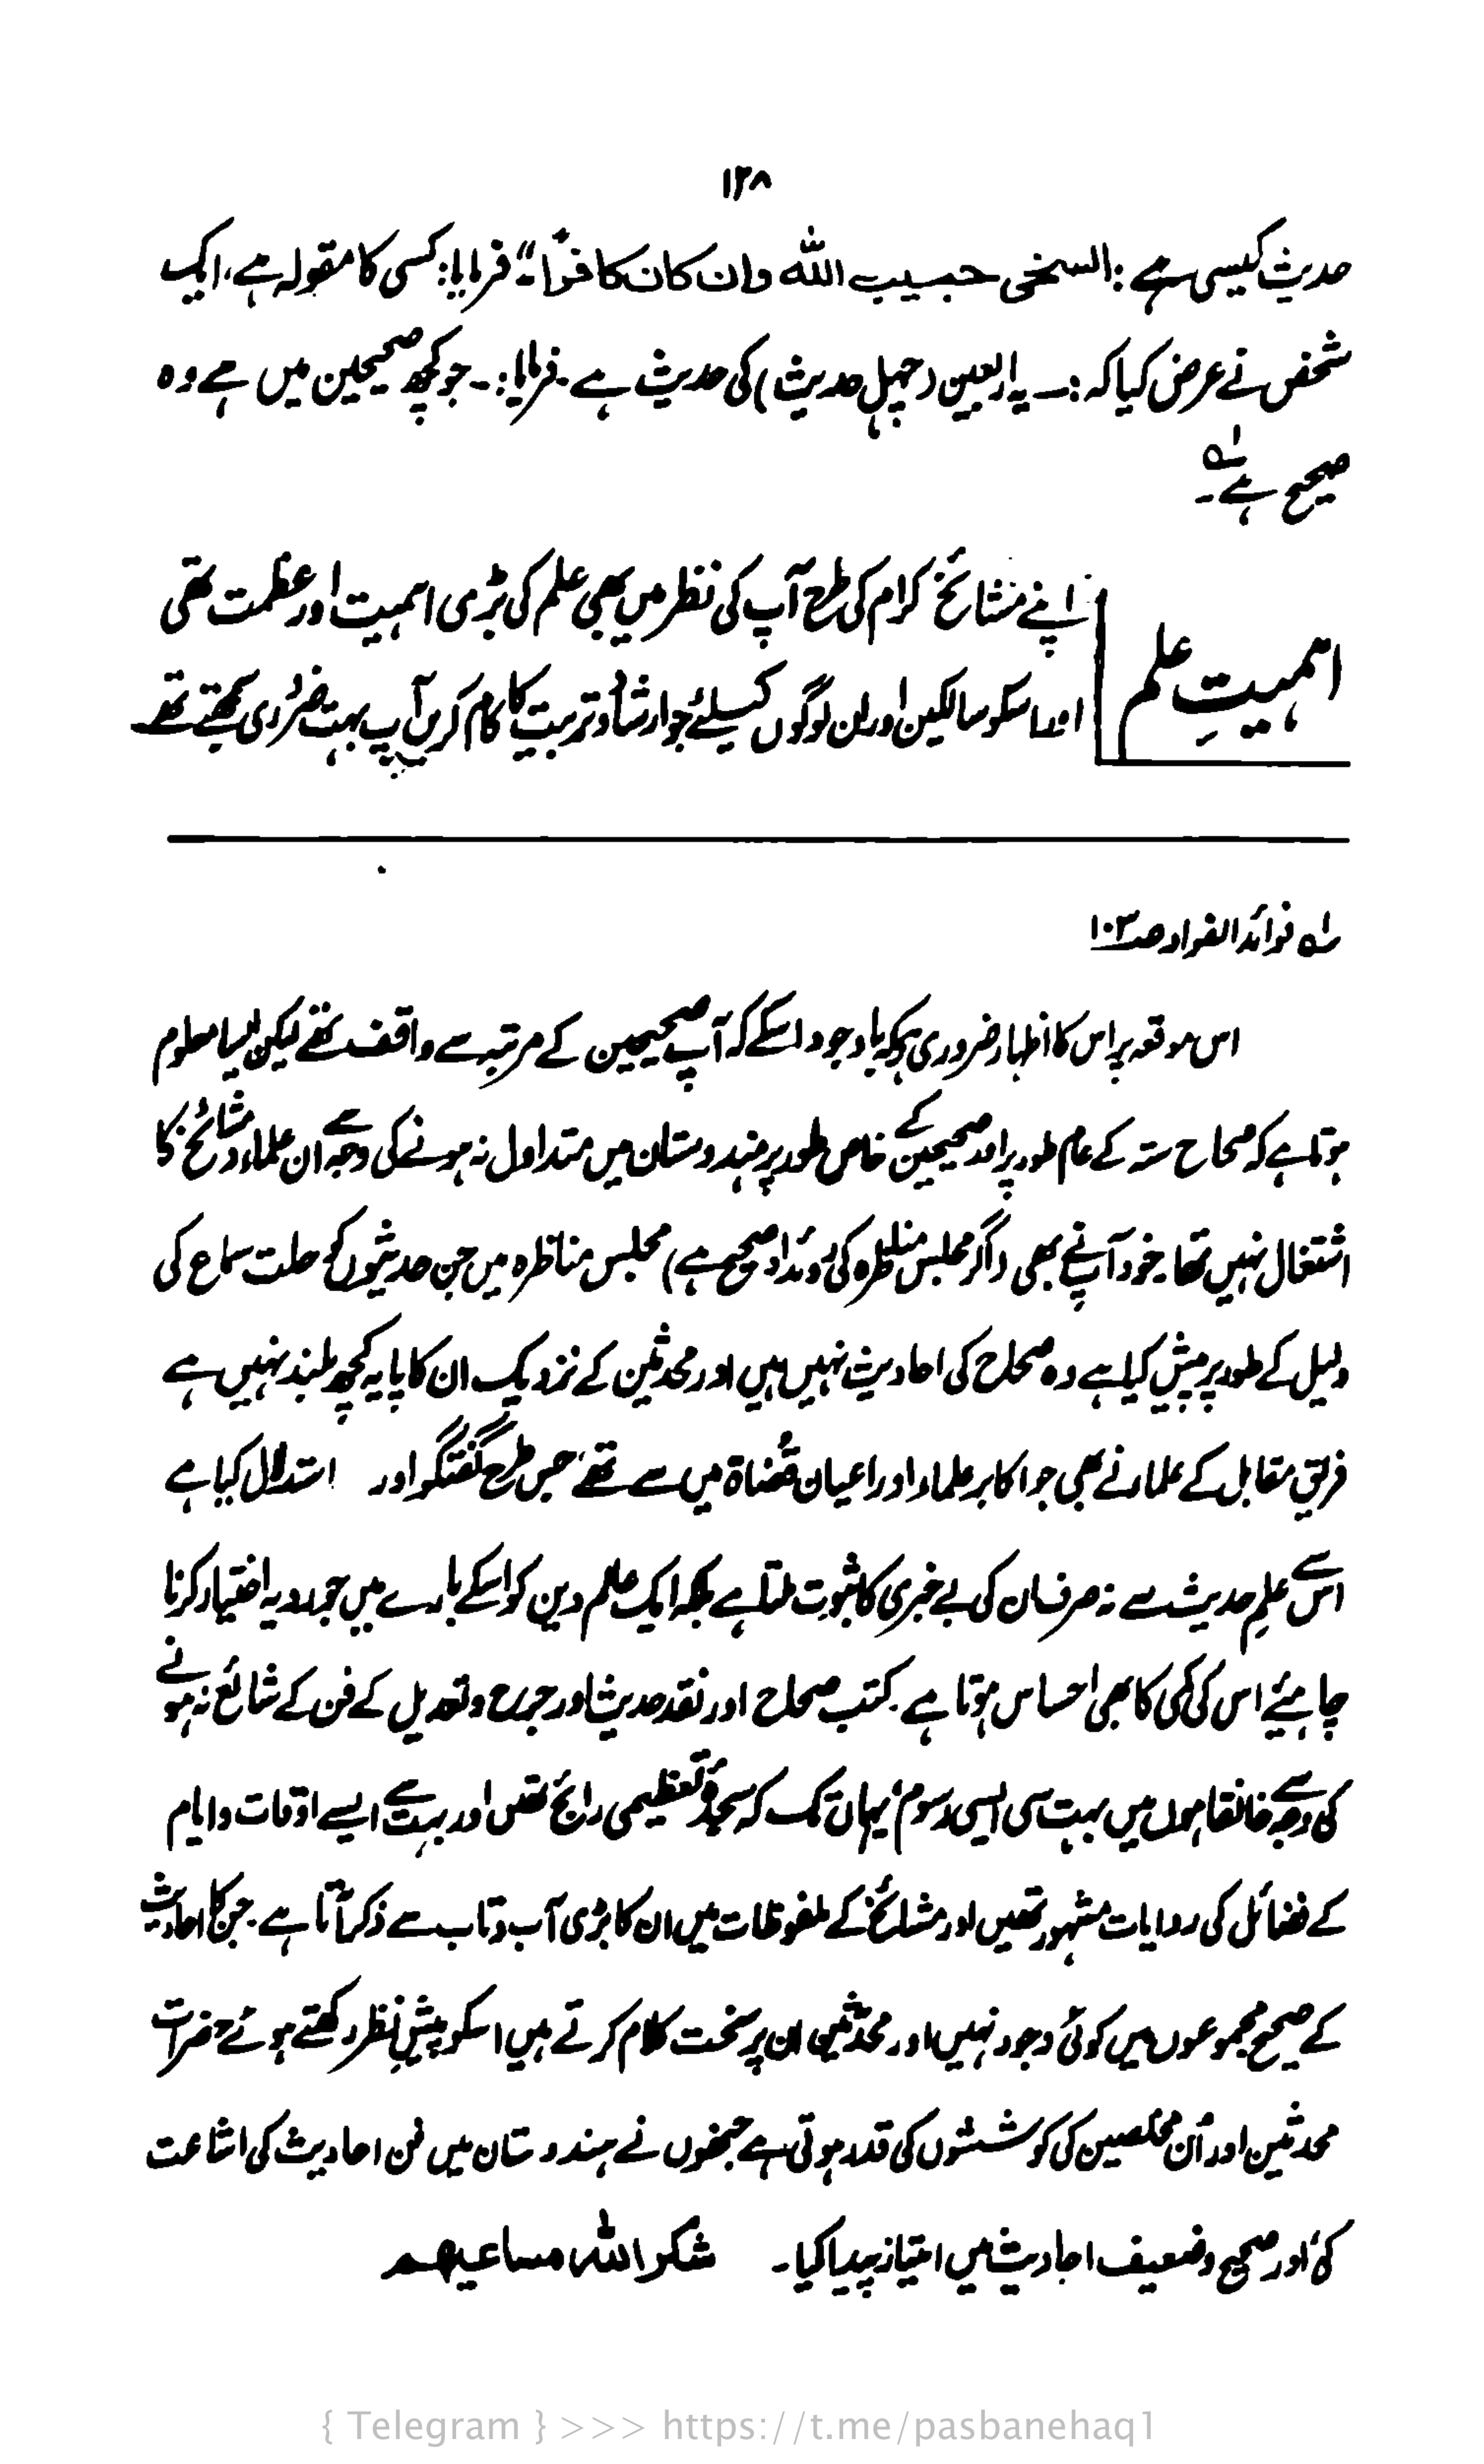 ۱۲۸
حدیث کیسی ہے: السخی حبیب اللہ وان کان کافراً۔" فرمایا: کسی کا مقولہ ہے، ایک
شخص نے عرض کیا کہ:۔ یہ اربعین (چہل حدیث) کی حدیث ہے۔ فرمایا:۔ جو کچھ صحیحین میں ہے وہ
صحیح ہے۔ ؎۱
اہمیتِ علم
اپنے مشائخ کرام کی طرح آپ کی نظر میں بھی علم کی بڑی اہمیت اور عظمت تھی
اور اسکو سالکین اور ان لوگوں کیلئے جو ارشاد و تربیت کا کام کریں آپ بہت ضروری سمجھتے تھے
؎۱ فوائد الفواد صـ۱۰۳
اس موقعہ پر اس کا اظہار ضروری ہیکہ باوجود اسکے کہ آپ صحیحین کے مرتبہ سے واقف تھے لیکن ایسا معلوم
ہوتا ہے کہ صحاح ستہ کے عام طور پر اور صحیحین کے خاص طور پر ہندوستان میں متداول نہ ہونے کی وجہ سے ان علماء و مشائخ کا
اشتغال نہیں تھا۔ خود آپ نے بھی (اگر مجلس مناظرہ کی روئداد صحیح ہے) مجلس مناظرہ میں جن حدیثوں کو حلت سماع کی
دلیل کے طور پر پیش کیا ہے وہ صحاح کی احادیث نہیں ہیں اور محدثین کے نزدیک ان کا پایہ کچھ بلند نہیں ہے
فریق مقابل کے علماء نے بھی جو اکابر علماء اور اعیان قُضاۃ میں سے تھے، جس طرح گفتگو اور استدلال کیا ہے
اس سے علمِ حدیث سے نہ صرف ان کی بے خبری کا ثبوت ملتا ہے بلکہ ایک عالم دین کو اسکے بارے میں جو رویہ اختیار کرنا
چاہیئے اس کی کمی کا بھی احساس ہوتا ہے۔ کتب صحاح اور نقد حدیث اور جرح و تعدیل کے فن کے شائع نہ ہونے
کی وجہ سے خانقاہوں میں بہت سی ایسی رسوم، یہاں تک کہ سجدۂ تعظیمی رائج تھیں اور بہت سے ایسے اوقات و ایام
کے فضائل کی روایات مشہور تھیں اور مشائخ کے ملفوظات میں ان کا بڑی آب و تاب سے ذکر آتا ہے۔ جن کا احادیث
کے صحیح مجموعوں میں کوئی وجود نہیں، اور محدثین ان پر سخت کلام کرتے ہیں اسکو پیشِ نظر رکھتے ہوئے حضرات
محدثین اور اُن مخلصین کی کوششوں کی قدر ہوتی ہے جنھوں نے ہندوستان میں فن احادیث کی اشاعت
کی، اور صحیح و ضعیف احادیث میں امتیاز پیدا کیا۔ شکر اللہ مساعیھم
{ Telegram } >>> https://t.me/pasbanehaq1